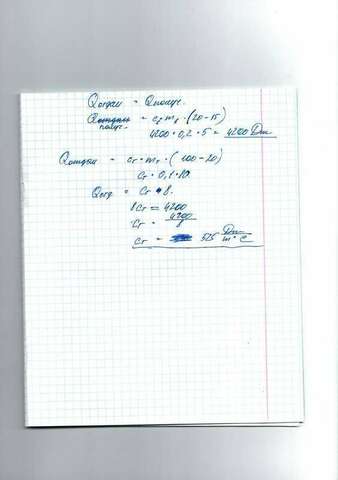 Qотдал = Qполуч.
Qполуч. = c₂ m₂ · (20-15)
4200 · 0,2 · 5 = 4200 Дж
Qотдал = cт · mт · (100-20)
cт · 0,1 · 80
Qотд = cт · 8.
8cт = 4200
cт = 4200/8
cт = 525 Дж/m·c